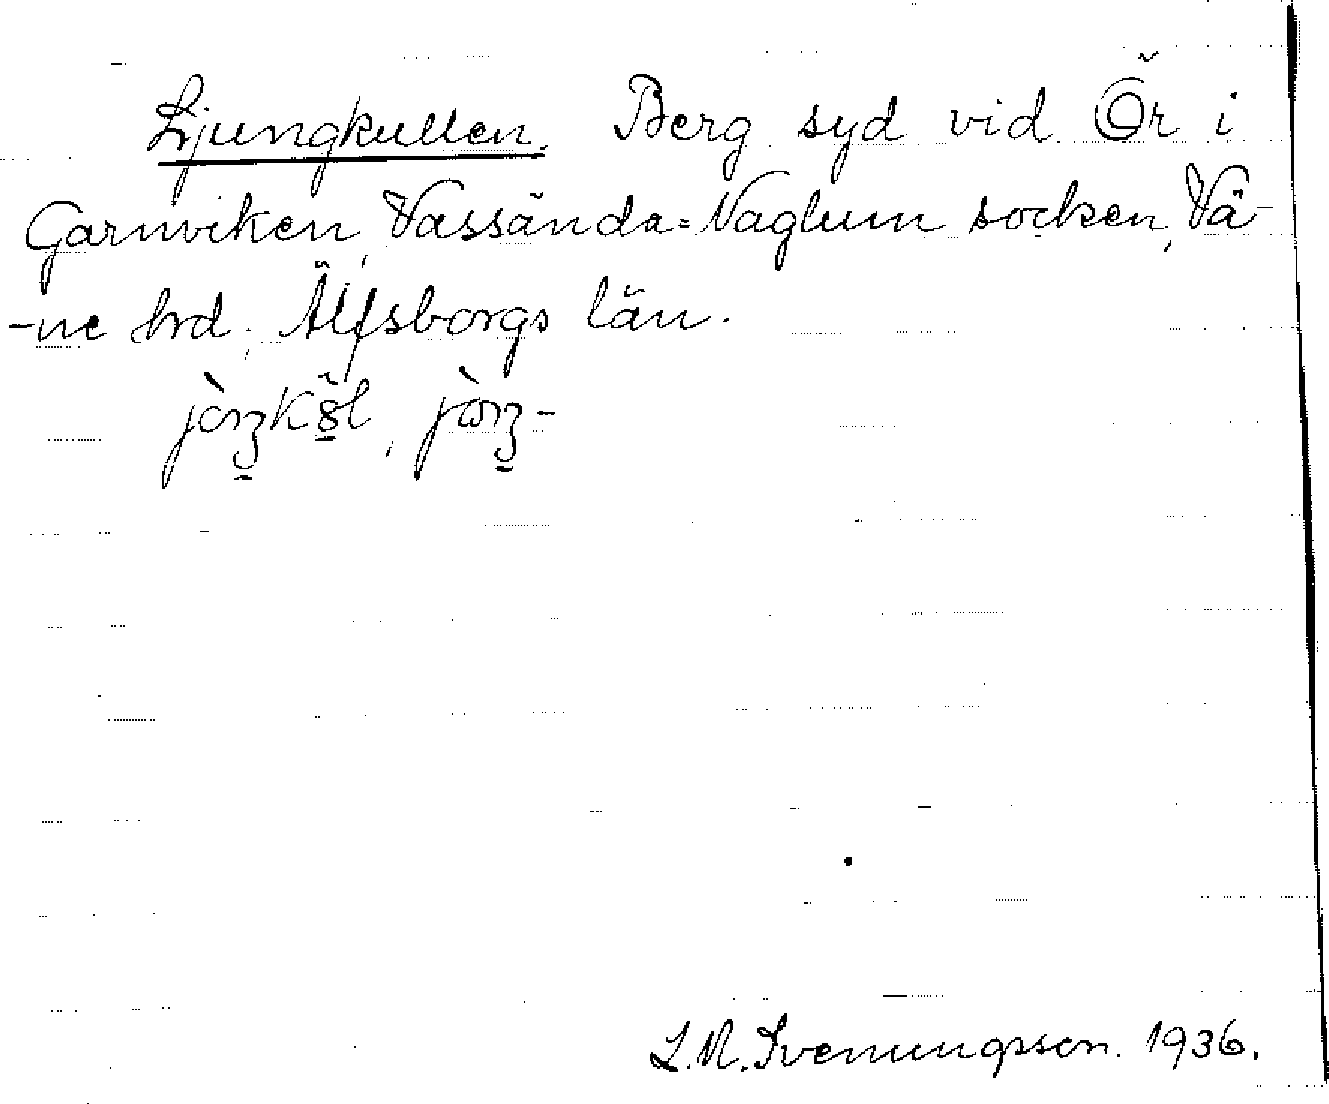 Ljungkullen. Berg syd vid Ör i
Garnviken, Vassända=Naglum socken, Vä-
-ne hrd, Älfsborgs län.
L.N. Svenungsson. 1936.